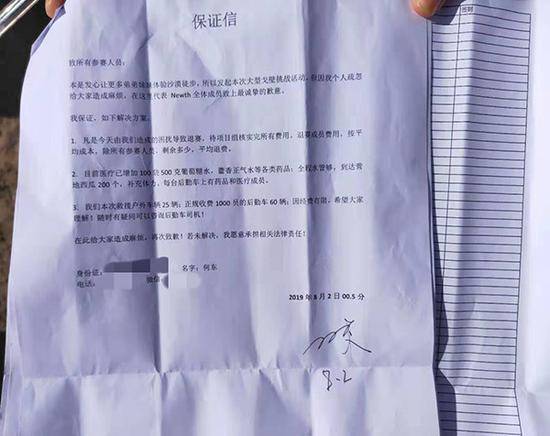 保证信
致所有参赛人员:
本是发心让更多弟弟妹妹体验沙漠徒步,所以发起本次大型戈壁挑战活动,但因我个人疏忽
给大家造成麻烦。在这里代表 Newth 全体成员致上最诚挚的歉意。
我保证,如下解决方案。
1、凡是今天由我们造成的困扰导致退赛,待项目组核实完所有费用,退赛成员费用,按平
均成本,除所有参赛人员,剩余多少,平均退费。
2、目前医疗已增加 100 袋 500 克葡萄糖水,藿香正气水等各类药品;全程水管够,到达营
地西瓜 200 个,补充体力,每台后勤车上有药品和医疗成员。
3、我们本次救援户外车辆 25 辆;正规收费 1000 员的后勤车 60 辆;因经费有限,希望大家
理解!随时有疑问可以咨询后勤车司机!
在此给大家造成麻烦,再次致歉!若未解决,我愿意承担相关法律责任!
身份证: 名字:何东
电话: 微信
2019 年 8 月 2 日 00.5 分
8.2